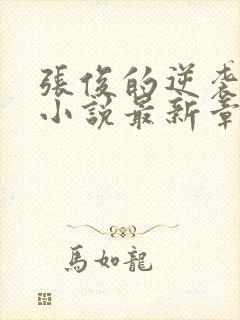 張俊的逆袭
小說最新章
馬如龍